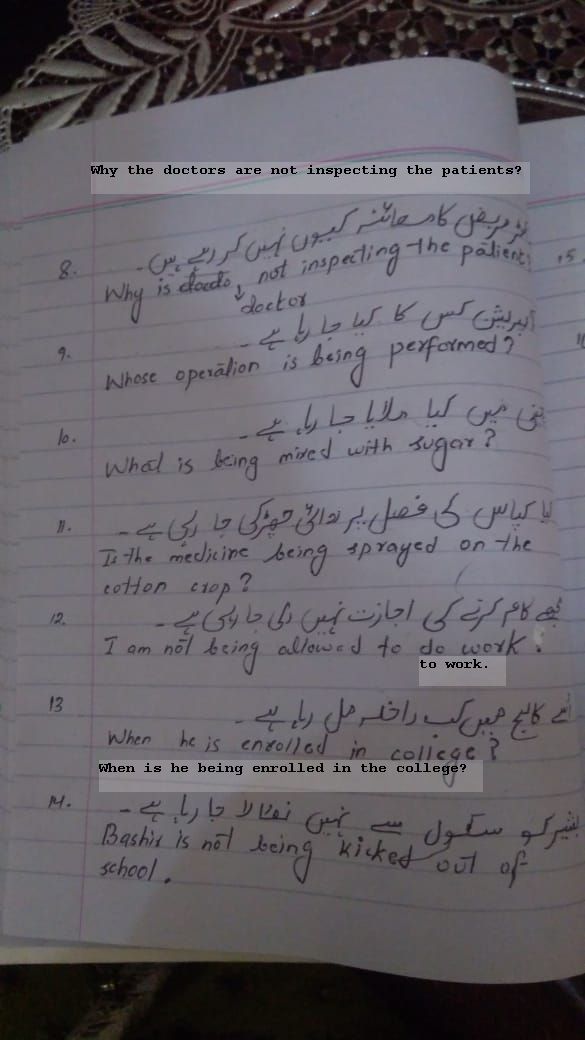 Why the doctors are not inspecting the patients?
8. مریض کا معائنہ کیوں نہیں کر رہے ہیں۔
Why is docto, not inspecting the patient
doctor
9. آپریشن کس کا کیا جا رہا ہے۔
Whose operation is being performed?
10. میں کیا ملایا جا رہا ہے۔
What is being mixed with sugar?
11. کیا کپاس کی فصل پر دوائی چھڑکی جا رہی ہے۔
Is the medicine being sprayed on the
cotton crop?
12. مجھے کام کرنے کی اجازت نہیں دی جا رہی ہے۔
I am not being allowed to do work.
to work.
13 اسے کالج میں کب داخلہ مل رہا ہے۔
When he is enrolled in college?
When is he being enrolled in the college?
14. بشیر کو سکول سے نہیں نکالا جا رہا ہے۔
Bashir is not being kicked out of
school.
15.